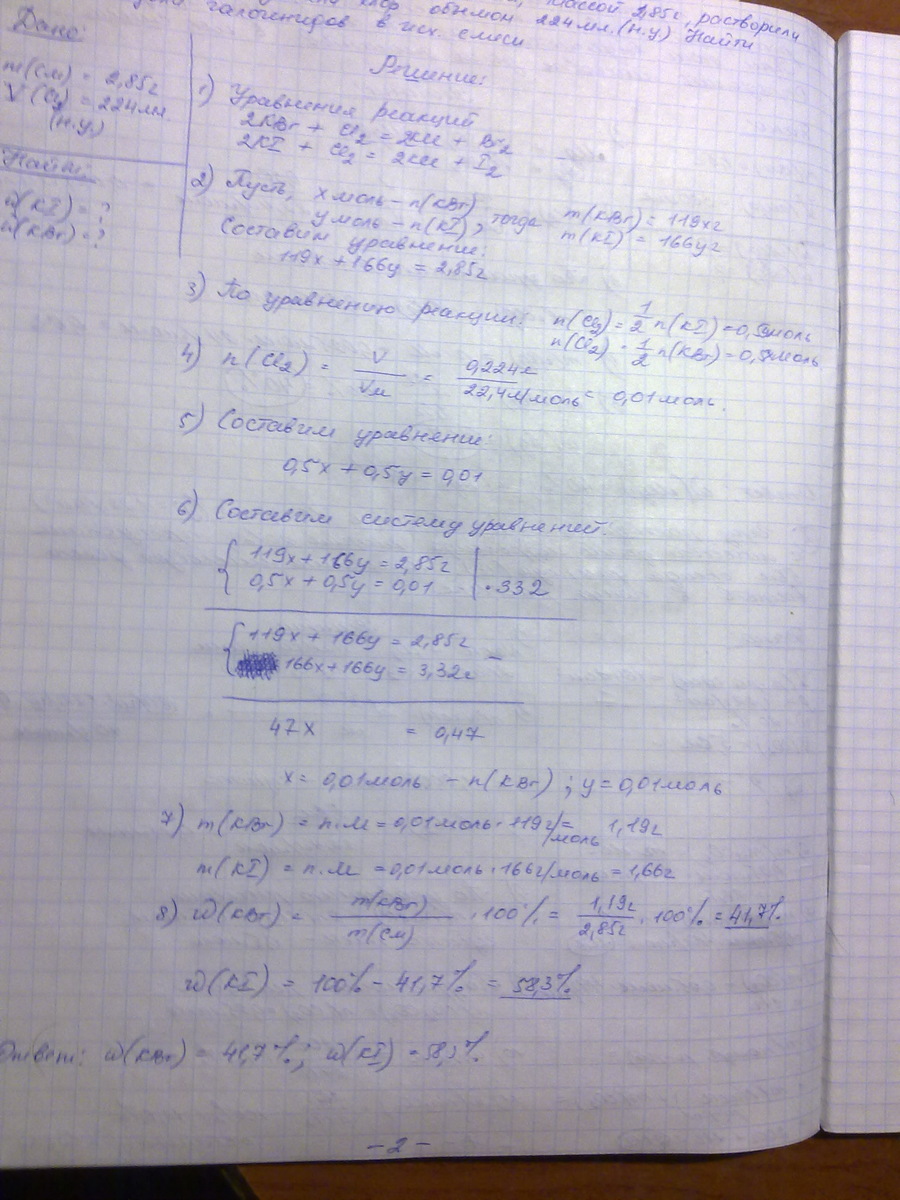 хлор объёмом 224 мл. (н.у) Найти
массой 2,85г, растворили
галогенидов в исх. смеси
Дано:
m(см) = 2,85г
V(Cl2) = 224мл.
(н.у.)
Найти:
ω(KI) = ?
ω(KBr) = ?
Решение:
1) Уравнения реакций
2KBr + Cl2 = 2KCl + Br2
2KI + Cl2 = 2KCl + I2
2) Пусть, x моль – n(KBr) тогда m(KBr) = 119xг
y моль – n(KI), m(KI) = 166yг
Составим уравнение:
119x + 166y = 2,85г
3) По уравнению реакции: n(Cl2) = 1/2 n(KI) = 0,5yмоль
n(Cl2) = 1/2 n(KBr) = 0,5xмоль
4) n(Cl2) = V/Vм = 0,224л/22,4л/моль = 0,01моль.
5) Составим уравнение:
0,5x + 0,5y = 0,01
6) Составим систему уравнений:
{ 119x + 166y = 2,85г
0,5x + 0,5y = 0,01 | ·332
{ 119x + 166y = 2,85г –
166x + 166y = 3,32г
47x = 0,47
x = 0,01моль – n(KBr) ; y = 0,01моль
7) m(KBr) = n·M = 0,01моль · 119г/моль = 1,19г
m(KI) = n·M = 0,01моль · 166г/моль = 1,66г
8) ω(KBr) = m(KBr)/m(см) · 100% = 1,19г/2,85г · 100% = 41,7%
ω(KI) = 100% – 41,7% = 58,3%
Ответ: ω(KBr) = 41,7%; ω(KI) = 58,3%
– 2 –